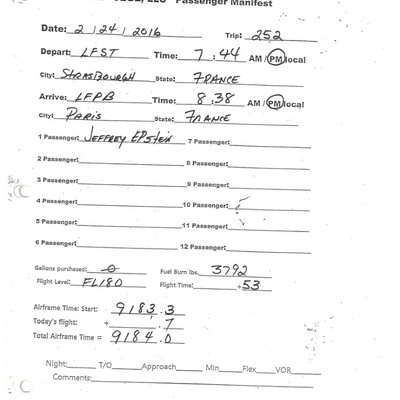 LLC Passenger Manifest
Date: 2 / 24 / 2016 Trip: 252
Depart: LFST Time: 7 : 44 AM / PM local
City: STRASBOURGH State: FRANCE
Arrive: LFPB Time: 8 : 38 AM / PM local
City: PARIS State: FRANCE
1 Passenger: JEFFREY EPSTEIN 7 Passenger:
2 Passenger: 8 Passenger:
3 Passenger: 9 Passenger:
4 Passenger 10 Passenger:
5 Passenger: 11 Passenger:
6 Passenger: 12 Passenger:
Gallons purchased: 0 Fuel Burn lbs. 3792
Flight Level: FL180 Flight Time: +53
Airframe Time: Start: 9183.3
Today's flight: + .7
Total Airframe Time = 9184.0
Night: T/O Approach Min Flex VOR
Comments: